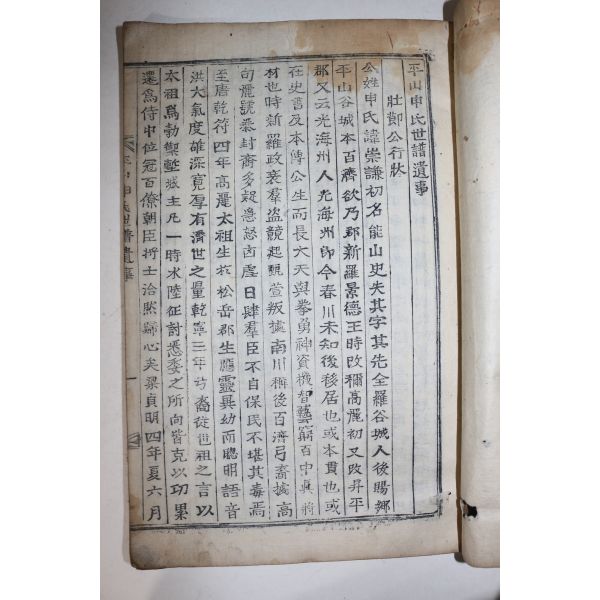 平山申氏世譜遺事
壯節公行狀
公姓申氏諱崇謙初名能山史失其字其先全羅谷城人後賜鄉
平山谷城本百濟欲乃郡新羅景德王時改稱高麗初又改昇平
郡又云光海州人光海州卽今春川未知後移居也或本貫也或
在史書及本傳公生而長大天與拳勇神資機智藝窮百中眞將
材也時新羅政衰羣盜競起甄萱叛據南川稱後百濟弓裔據高
句麗號泰封裔多疑急怒古虐日肆羣臣不自保民不堪其毒焉
至唐乾符四年高麗太祖生於松岳郡生應靈異幼而聰明語音
洪大氣度雄深寬厚有濟世之量乾寧三年弓裔從世祖之言以
太祖爲勃禦塹城主凡一時水陸征討悉委之所向皆克以功累
遷爲侍中位冠百僚朝臣將士洽然歸心矣梁貞明四年夏六月
平山申氏世譜遺事